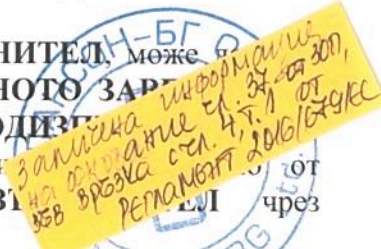 НИТЕЛ, може
НОТО ЗАВ
ОДИЗП
от
ВЪ ЕЛ чрез
заличена информация
на основание чл. 37 от ЗОП,
във връзка с чл. 4, т. 1 от
РЕГЛАМЕНТ 2016/679/ЕС